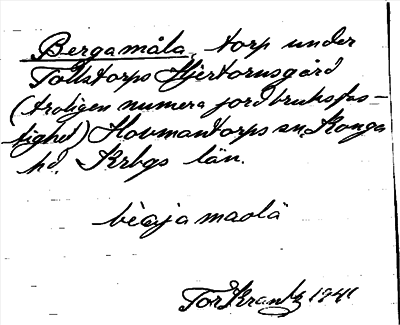 Bergamåla, torp under
Tollstorps Hjertornsgård
(troligen numera jordbruksfas-
tighet) Hovmantorps sn, Konga
hd. Krbgs län.
bèrja maolä
Tor Krantz 1941